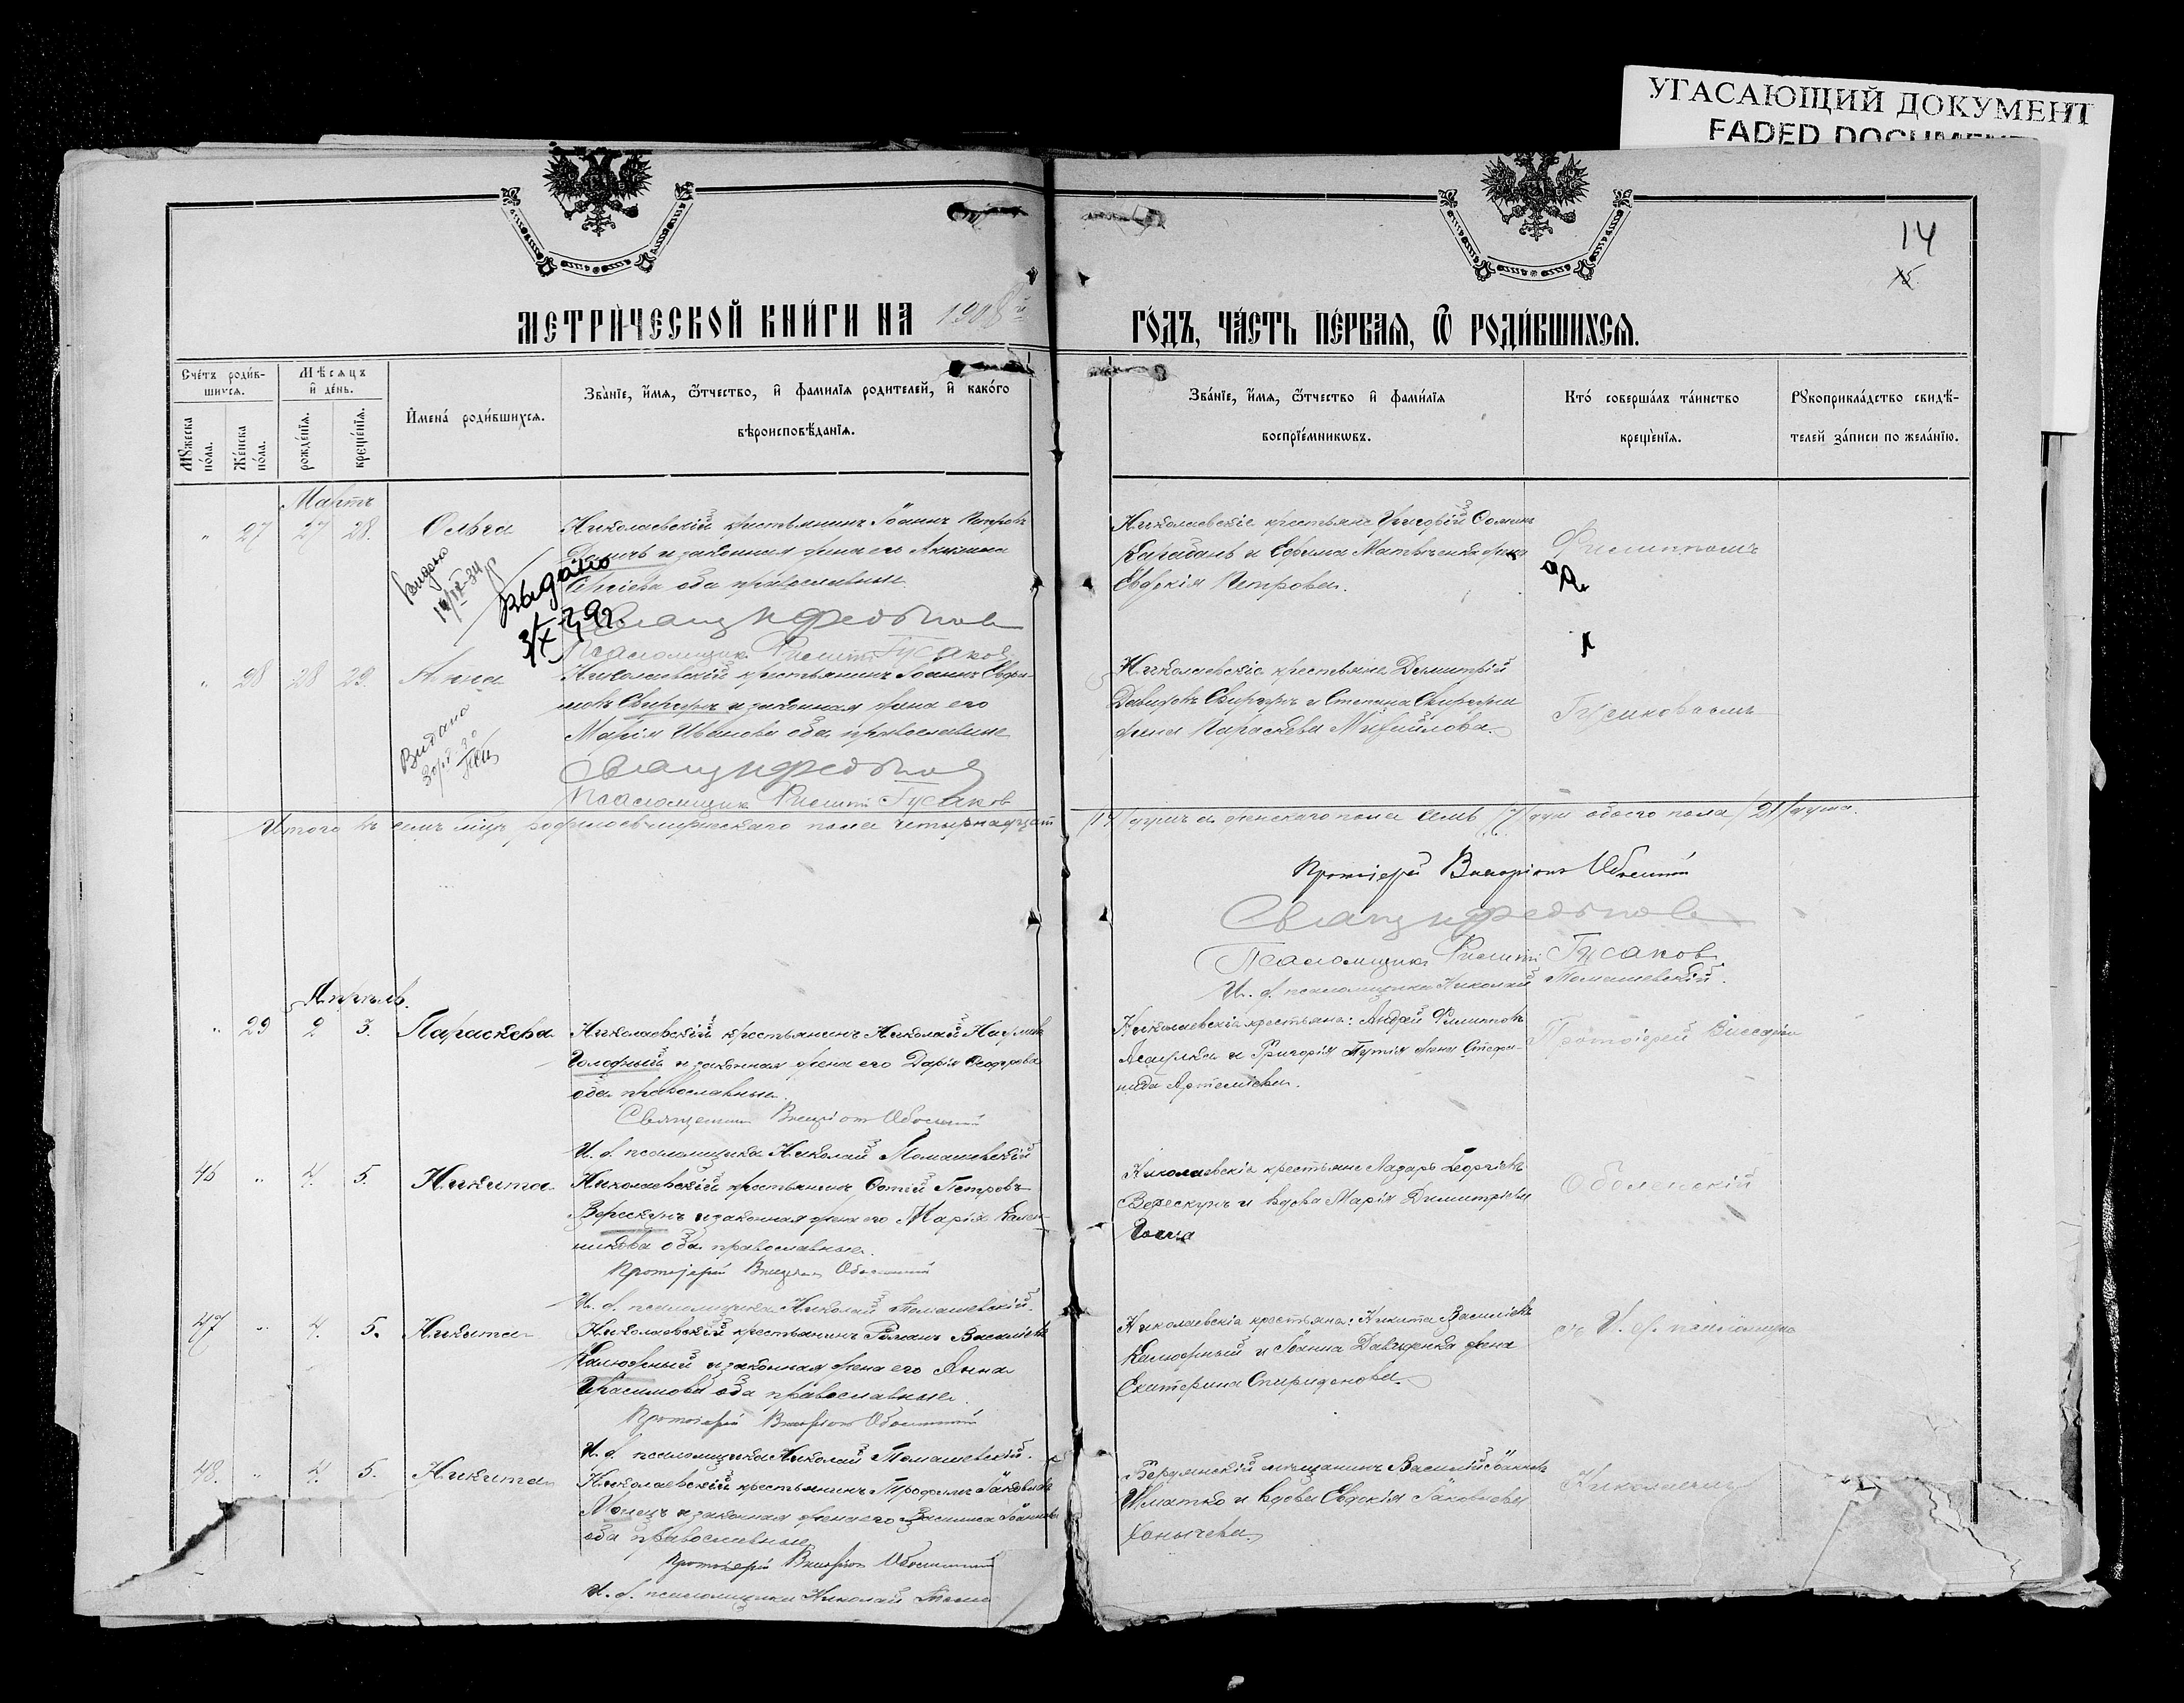 УГАСАЮЩИЙ ДОКУМЕНТ
FADED DOCUMENT
14
15
МЕТРИЧЕСКОЙ КНИГИ НА 1908й
ГОДЪ, ЧАСТЬ ПЕРВАЯ, Ѿ РОДИВШИХСЯ.
Счетъ родив-
шихся.
Мѣсяцъ
и день.
Мужеска
пола.
Женска
пола.
рожденія.
крещенія.
Имена родившихся.
Званіе, имя, ѿтчество, и фамилія родителей, и какого
вѣроисповѣданія.
Званіе, имя, ѿтчество и фамилія
воспріемниковъ.
Кто совершалъ таинство
крещенія.
Рукоприкладство свидѣ-
телей записи по желанію.
Мартъ
" 27 27 28. Ольга
Николаевскій крестьянинъ Іоаннъ Петровъ
и законная жена его
оба православные
Псаломщикъ Филиппъ Гусаковъ
Николаевскіе крестьяне Григорій
и Ефима жена
Евдокія Петрова.
Филиппомъ
Видано
Выдано
" 28 28 29. Анна
Николаевскій крестьянинъ Іоаннъ Ефи-
мовъ и законная жена его
Марія Иванова оба православные
Псаломщикъ Филиппъ Гусаковъ
Николаевскіе крестьяне Димитрій
Давидовъ и Стефана
жена Параскева Михайлова.
Гусаковымъ
Видано
Итого въ семъ мѣсяцѣ родилось мужескаго пола четырнадцать
/14/ душъ а женскаго пола семь /7/ душъ обоего пола /21/ душа.
Протоіерей Виссаріонъ Оболенскій
Псаломщикъ Филиппъ Гусаковъ
И. д. псаломщика Николай Томашевскій.
Апрѣль.
" 29 2 3. Параскева
Николаевскій крестьянинъ Николай Наумовъ
Голодный и законная жена его Дарія Өеодорова
оба православные.
Священникъ Виссаріонъ Оболенскій
И. д. псаломщика Николай Томашевскій
Николаевскіе крестьяне: Андрей Филипповъ
и Григорія Путія жена Стефа-
нида Артеміева.
Протоіерей Виссаріонъ
46 " 4. 5. Никита
Николаевскій крестьянинъ Фотій Петровъ
Верескунъ и законная жена его Марія Калин-
никова оба православные.
Протоіерей Виссаріонъ Оболенскій
И. д. псаломщика Николай Томашевскій.
Николаевскіе крестьяне Лазарь Георгіевъ
Верескунъ и вдова Марія Димитріева
Оболенскій
47 " 4. 5. Никита
Николаевскій крестьянинъ Романъ Василіевъ
Калюжный и законная жена его Анна
Герасимова оба православные.
Протоіерей Виссаріонъ Оболенскій
И. д. псаломщика Николай Томашевскій.
Николаевскіе крестьяне: Никита Василіевъ
Калюжный и Іоанна Давиденка жена
Екатерина Спиридонова.
съ И. д. псаломщика
48. " 4. 5. Никита
Николаевскій крестьянинъ Трофимъ Іаковлевъ
и законная жена его Василиса Іоаннова
оба православные
Протоіерей Виссаріонъ Оболенскій
И. д. псаломщика Николай
Бердянскій мѣщанинъ Василій Іоанновъ
Игнатко и вдова Евдокія Іаковлева
Николаемъ